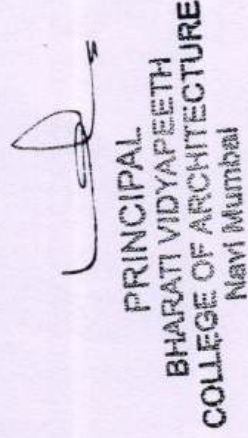 PRINCIPAL
BHARATI VIDYAPEETH
COLLEGE OF ARCHITECTURE
Navi Mumbai